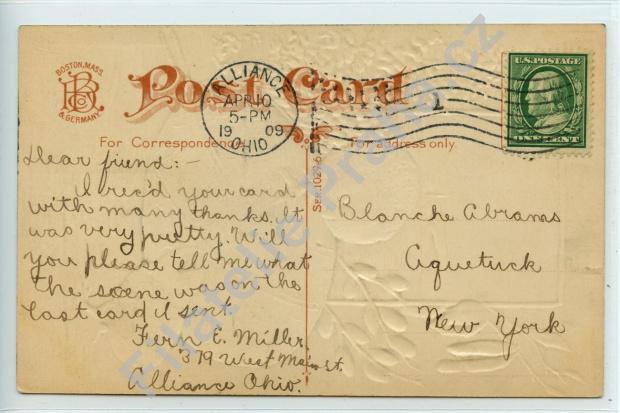 BOSTON, MASS.
& GERMANY.
Post Card
For Correspondence
for address only.
ALLIANCE
APR 10
5-PM
1909
OHIO
U.S. POSTAGE
ONE CENT
1
SER. 1029-6
Dear friend:-
I rec'd your card
with many thanks. It
was very pretty. Will
you please tell me what
the scene was on the
last card I sent
Fern E. Miller.
379 West Main st.
Alliance Ohio.
Blanche Abrams
Aquetuck
New York
Filatelie Praha.cz